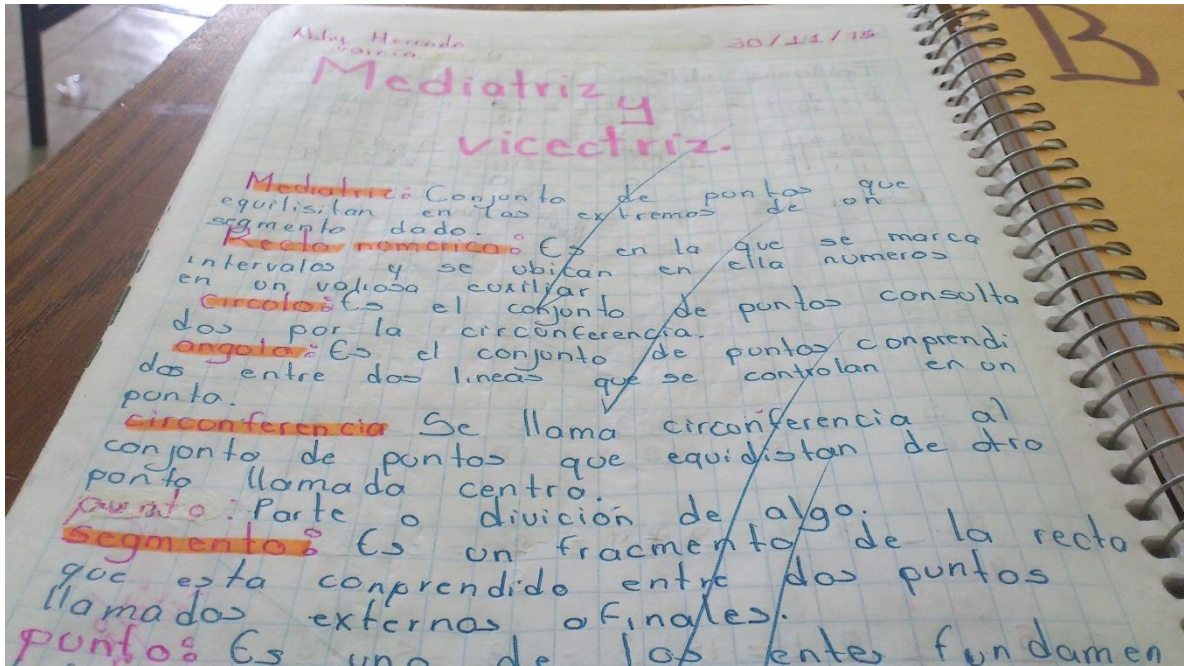 Merendo
30/11/15
Mediatriz y
vicectriz.
Mediatriz: Conjunto de puntos que
equilisitan en las extremos de un
segmento dado.
Recta numerica: Es en la que se marca
intervalos y se ubican en ella numeros
en un valiosa auxiliar
Circulo: Es el conjunto de puntos consulta
dos por la circunferencia.
angulo: Es el conjunto de puntos conprendi
dos entre dos lineas que se controlan en un
punto.
circunferencia Se llama circunferencia al
conjunto de puntos que equidistan de otro
punto llamado centro.
punto: Parte o divición de algo.
Segmento: Es un fracmento de la recta
que esta conprendido entre dos puntos
llamados externos o finales.
punto: Es uno de los entes fundamen
B